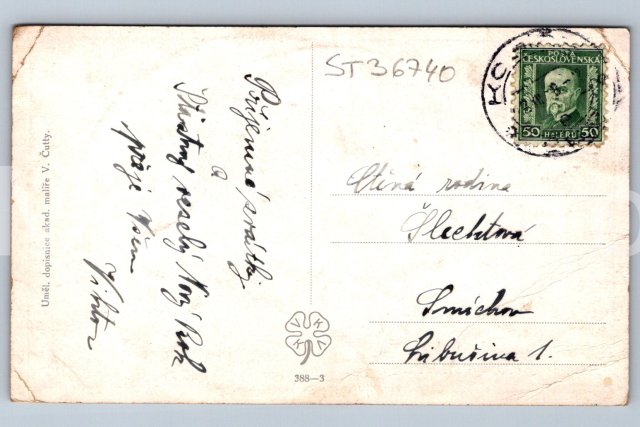 Příjemné svátky
a
Šťastný veselý Nový Rok
přeje Vám
Viktor
Uměl. dopisnice akad. malíře V. Čutty.
388—3
ST36740
POŠTA
ČESKOSLOVENSKÁ
50 HALÉŘŮ 50
Ctěná rodina
Šlechtova
Smíchov
Libušina 1.